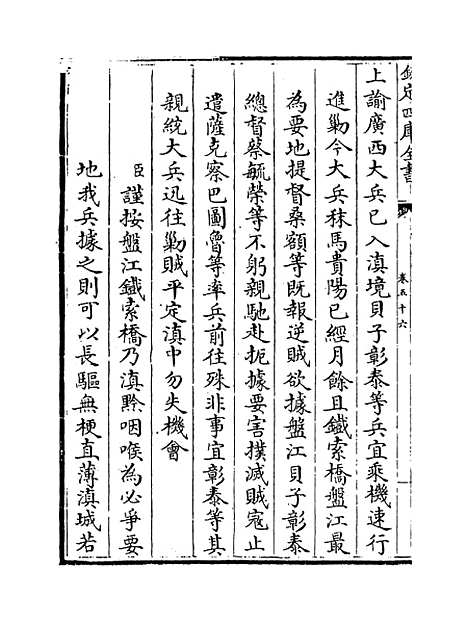 欽定四庫全書
卷五十六
上諭廣西大兵已入滇境貝子彰泰等兵宜乘機速行
進勦今大兵秣馬貴陽已經月餘且鐵索橋盤江最
為要地提督桑額等既報逆賊欲據盤江貝子彰泰
總督蔡毓榮等不躬親馳赴扼據要害撲滅賊寇止
遣薩克察巴圖魯等率兵前往殊非事宜彰泰等其
親統大兵迅往勦賊平定滇中勿失機會
臣謹按盤江鐵索橋乃滇黔咽喉為必爭要
地我兵據之則可以長驅無梗直薄滇城若